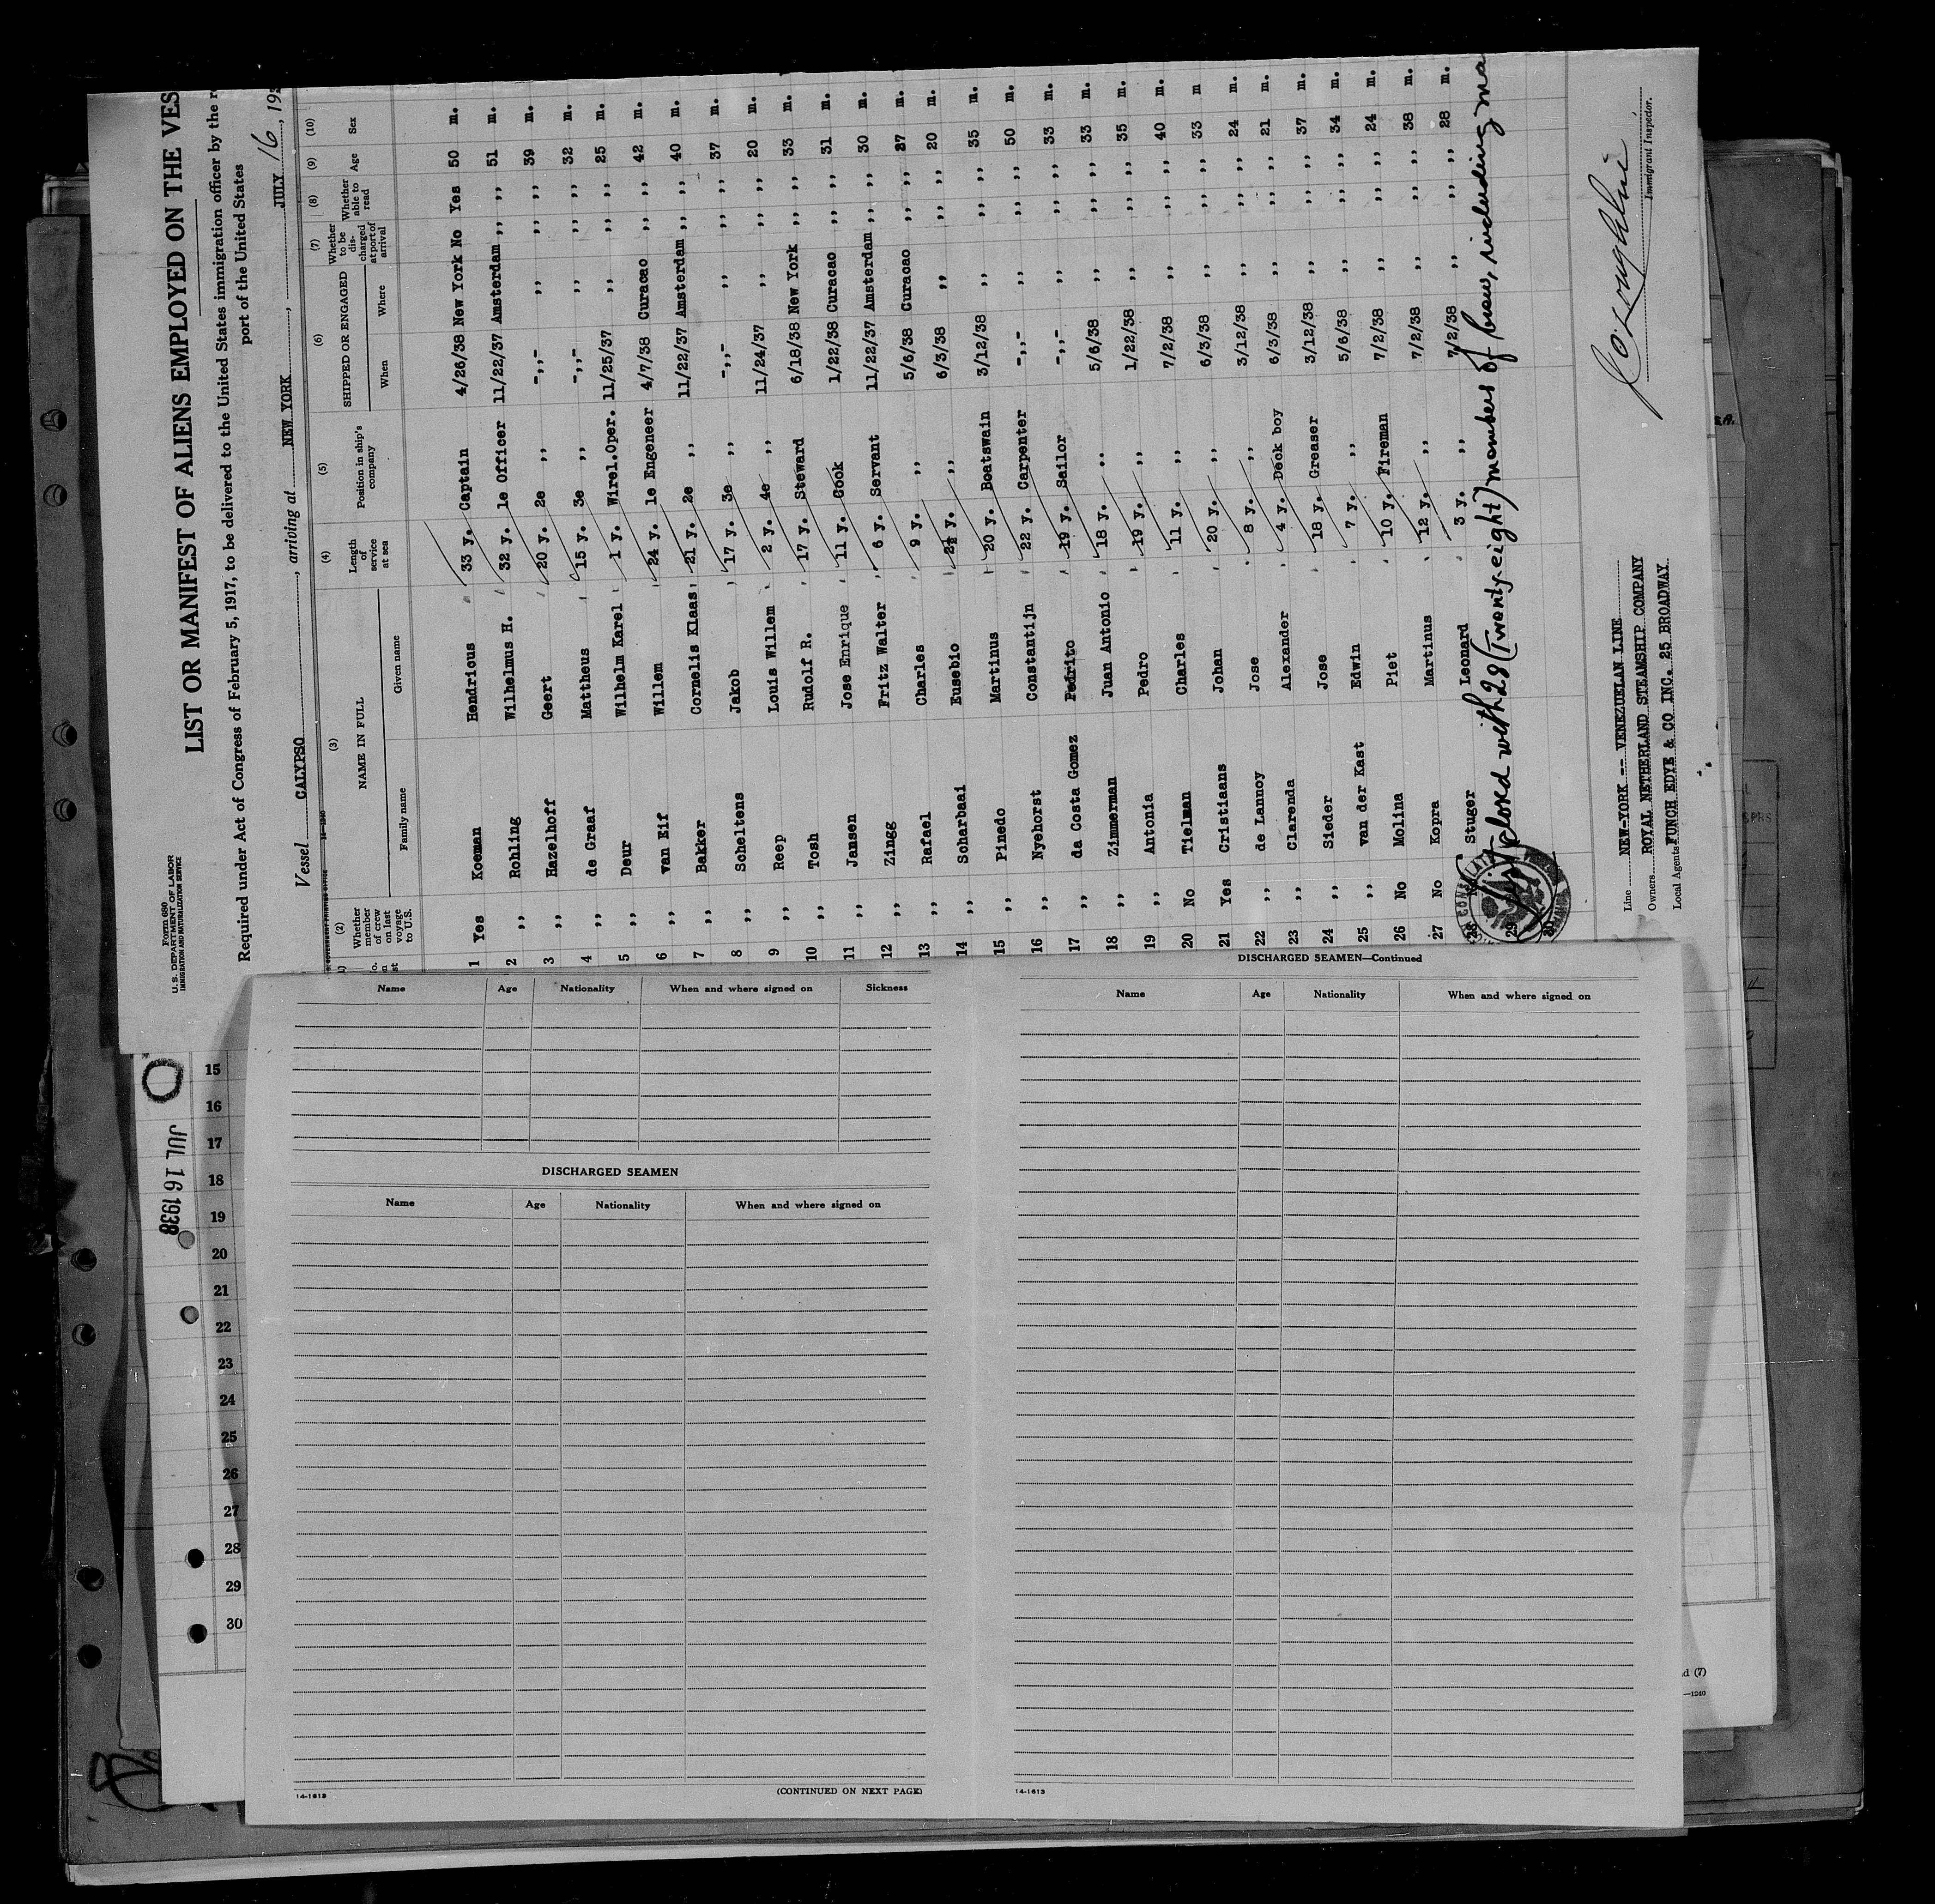 Form 680
U. S. DEPARTMENT OF LABOR
IMMIGRATION AND NATURALIZATION SERVICE
LIST OR MANIFEST OF ALIENS EMPLOYED ON THE VES
Required under Act of Congress of February 5, 1917, to be delivered to the United States immigration officer by the r
port of the United States
Vessel CALYPSO, arriving at NEW YORK, JULY 16, 193
(2) (3) (4) (5) (6) (7) (8) (9) (10)
Whether member of crew on last voyage to U.S. NAME IN FULL Length of service at sea Position in ship's company SHIPPED OR ENGAGED Whether to be discharged at port of arrival Whether able to read Age Sex
Family name Given name When Where
1 Yes Koeman Hendricus 33 y. Captain 4/26/38 New York No Yes 50 m.
2 ,, Rohling Wilhelmus H. 32 y. 1e Officer 11/22/37 Amsterdam ,, ,, 51 m.
3 ,, Hazelhoff Geert 20 y. 2e ,, -,,- ,, ,, ,, 39 m.
4 ,, de Graaf Mattheus 15 y. 3e ,, -,,- ,, ,, ,, 32 m.
5 ,, Deur Wilhelm Karel 1 y. Wirel.Oper. 11/25/37 ,, ,, ,, 25 m.
6 ,, van Eif Willem 24 y. 1e Engeneer 4/7/38 Curacao ,, ,, 42 m.
7 ,, Bakker Cornelis Klaas 21 y. 2e ,, 11/22/37 Amsterdam ,, ,, 40 m.
8 ,, Scheltens Jakob 17 y. 3e ,, -,,- ,, ,, ,, 37 m.
9 ,, Reep Louis Willem 2 y. 4e ,, 11/24/37 ,, ,, ,, 20 m.
10 ,, Tosh Rudolf R. 17 y. Steward 6/18/38 New York ,, ,, 33 m.
11 ,, Jansen Jose Enrique 11 y. Cook 1/22/38 Curacao ,, ,, 31 m.
12 ,, Zingg Fritz Walter 6 y. Servant 11/22/37 Amsterdam ,, ,, 30 m.
13 ,, Rafael Charles 9 y. ,, 5/6/38 Curacao ,, ,, 27 m.
14 ,, Scharbaai Eusebio 2½ y. ,, 6/3/38 ,, ,, ,, 20 m.
15 ,, Pinedo Martinus 20 y. Boatswain 3/12/38 ,, ,, ,, 35 m.
16 ,, Nyehorst Constantijn 22 y. Carpenter -,,- ,, ,, ,, 50 m.
17 ,, da Costa Gomez Pedrito 19 y. Sailor -,,- ,, ,, ,, 33 m.
18 ,, Zimmerman Juan Antonio 18 y. ,, 5/6/38 ,, ,, ,, 33 m.
19 ,, Antonia Pedro 19 y. ,, 1/22/38 ,, ,, ,, 35 m.
20 No Tielman Charles 11 y. ,, 7/2/38 ,, ,, ,, 40 m.
21 Yes Cristiaans Johan 20 y. ,, 6/3/38 ,, ,, ,, 33 m
22 ,, de Lannoy Jose 8 y. ,, 3/12/38 ,, ,, ,, 24 m.
23 ,, Clarenda Alexander 4 y. Deck boy 6/3/38 ,, ,, ,, 21 m.
24 ,, Sieder Jose 18 y. Greaser 3/12/38 ,, ,, ,, 37 m.
25 ,, van der Kast Edwin 7 y. ,, 5/6/38 ,, ,, ,, 34 m.
26 No Molina Piet 10 y. Fireman 7/2/38 ,, ,, ,, 24 m.
27 No Kopra Martinus 12 y. ,, 7/2/38 ,, ,, ,, 38 m.
28 Stuger Leonard 3 y. ,, 7/2/38 ,, ,, ,, 28 m.
29 List closed with 28 (Twenty-eight) members of crew, including ma
30
Line NEW-YORK -- VENEZUELAN LINE
Owners ROYAL NETHERLAND STEAMSHIP COMPANY
Local Agents FUNCH EDYE & CO INC. 25 BROADWAY.
Immigrant Inspector.
Name Age Nationality When and where signed on Sickness
DISCHARGED SEAMEN
Name Age Nationality When and where signed on
(CONTINUED ON NEXT PAGE)
14-1613
DISCHARGED SEAMEN—Continued
Name Age Nationality When and where signed on
14-1613
JUL 16 1938
15
16
17
18
19
20
21
22
23
24
25
26
27
28
29
30
d (7)
—1240